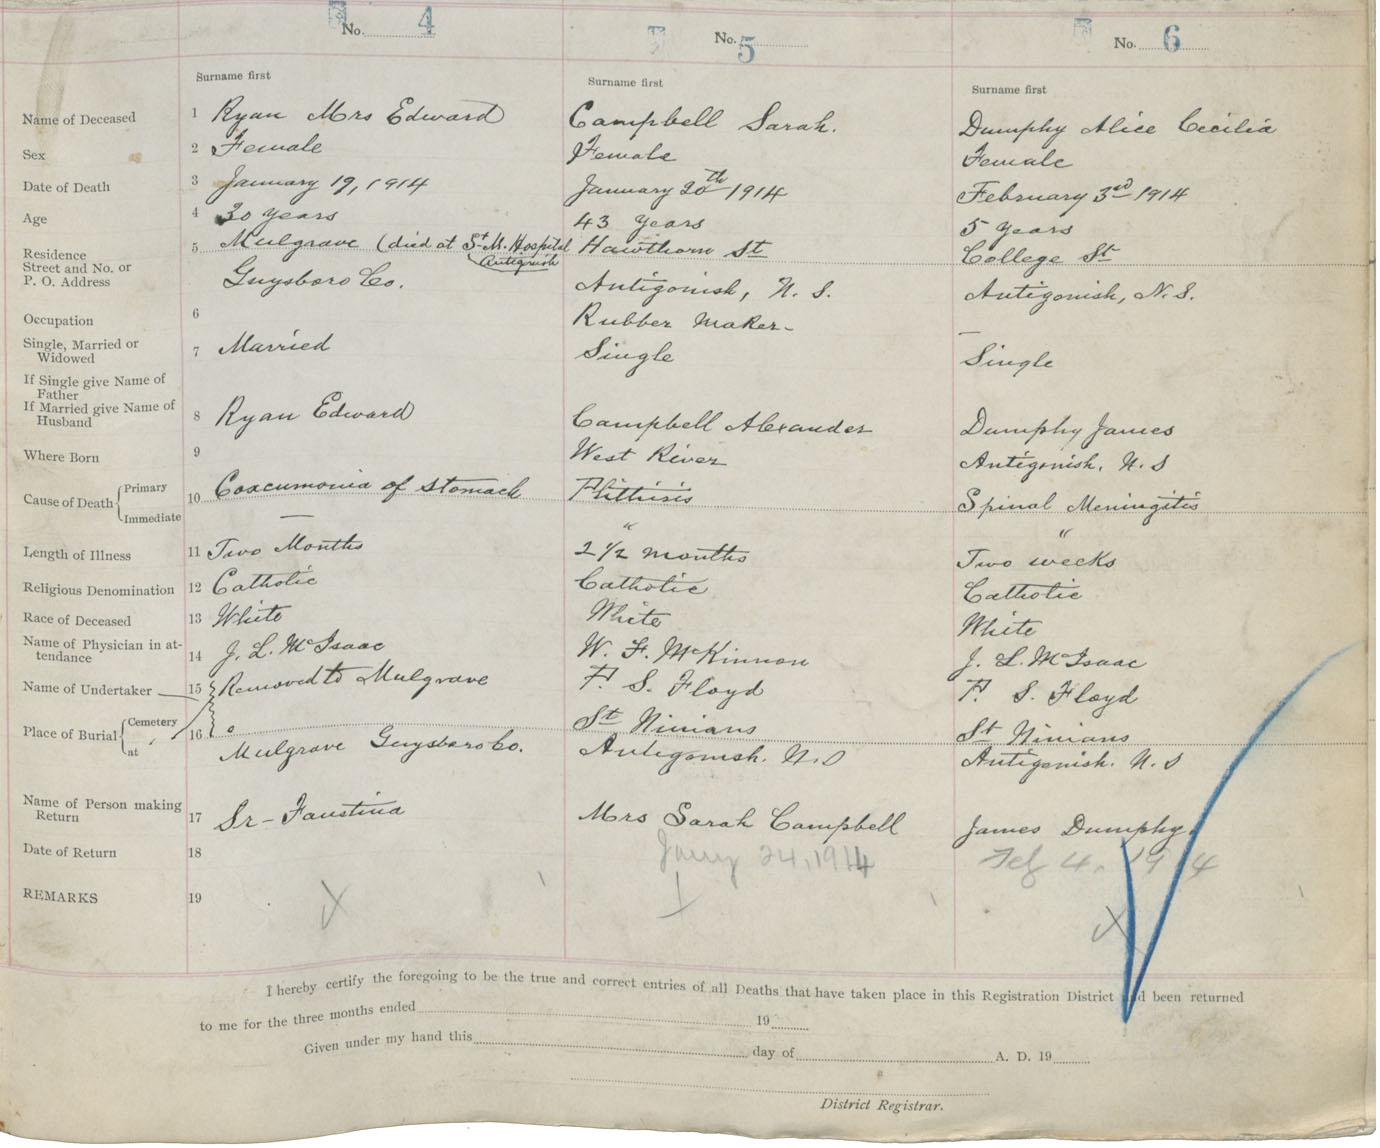 No. 4
No. 5
No. 6
Surname first
Surname first
Surname first
Name of Deceased 1 Ryan Mrs Edward
Campbell Sarah.
Dumphy Alice Cecilia
Sex 2 Female
Female
Female
Date of Death 3 January 19, 1914
January 20th 1914
February 3rd 1914
Age 4 30 years
43 Years
5 Years
Residence 5 Mulgrave (died at St. M. Hospital
Antigonish
Hawthorn St
College St
Street and No. or
P. O. Address
Guysboro Co.
Antigonish, N. S.
Antigonish, N.S.
Occupation 6
Rubber Maker-
—
Single, Married or
Widowed
7 Married
Single
Single
If Single give Name of
Father
If Married give Name of
Husband
8 Ryan Edward
Campbell Alexander
Dumphy James
Where Born 9
West River
Antigonish. N. S
Cause of Death { Primary
Immediate
10 Coxcumonia of stomach
Phthisis
Spinal Meningitis
—
"
"
Length of Illness 11 Two Months
2 1/2 months
Two weeks
Religious Denomination 12 Catholic
Catholic
Catholic
Race of Deceased 13 White
White
White
Name of Physician in at-
tendance
14 J. L. McIsaac
W. F. McKinnon
J. L. McIsaac
Name of Undertaker 15 Removed to Mulgrave
F. S. Floyd
F. S. Floyd
Place of Burial { Cemetery
at
16
St Ninians
St Ninians
Mulgrave Guysboro Co.
Antigonish. N. S
Antigonish. N. S
Name of Person making
Return
17 Sr - Faustina
Mrs Sarah Campbell
James Dumphy
Date of Return 18
Jany 24, 1914
Feb 4, 1914
REMARKS 19
I hereby certify the foregoing to be the true and correct entries of all Deaths that have taken place in this Registration District and been returned
to me for the three months ended 19
Given under my hand this day of A. D. 19
District Registrar.